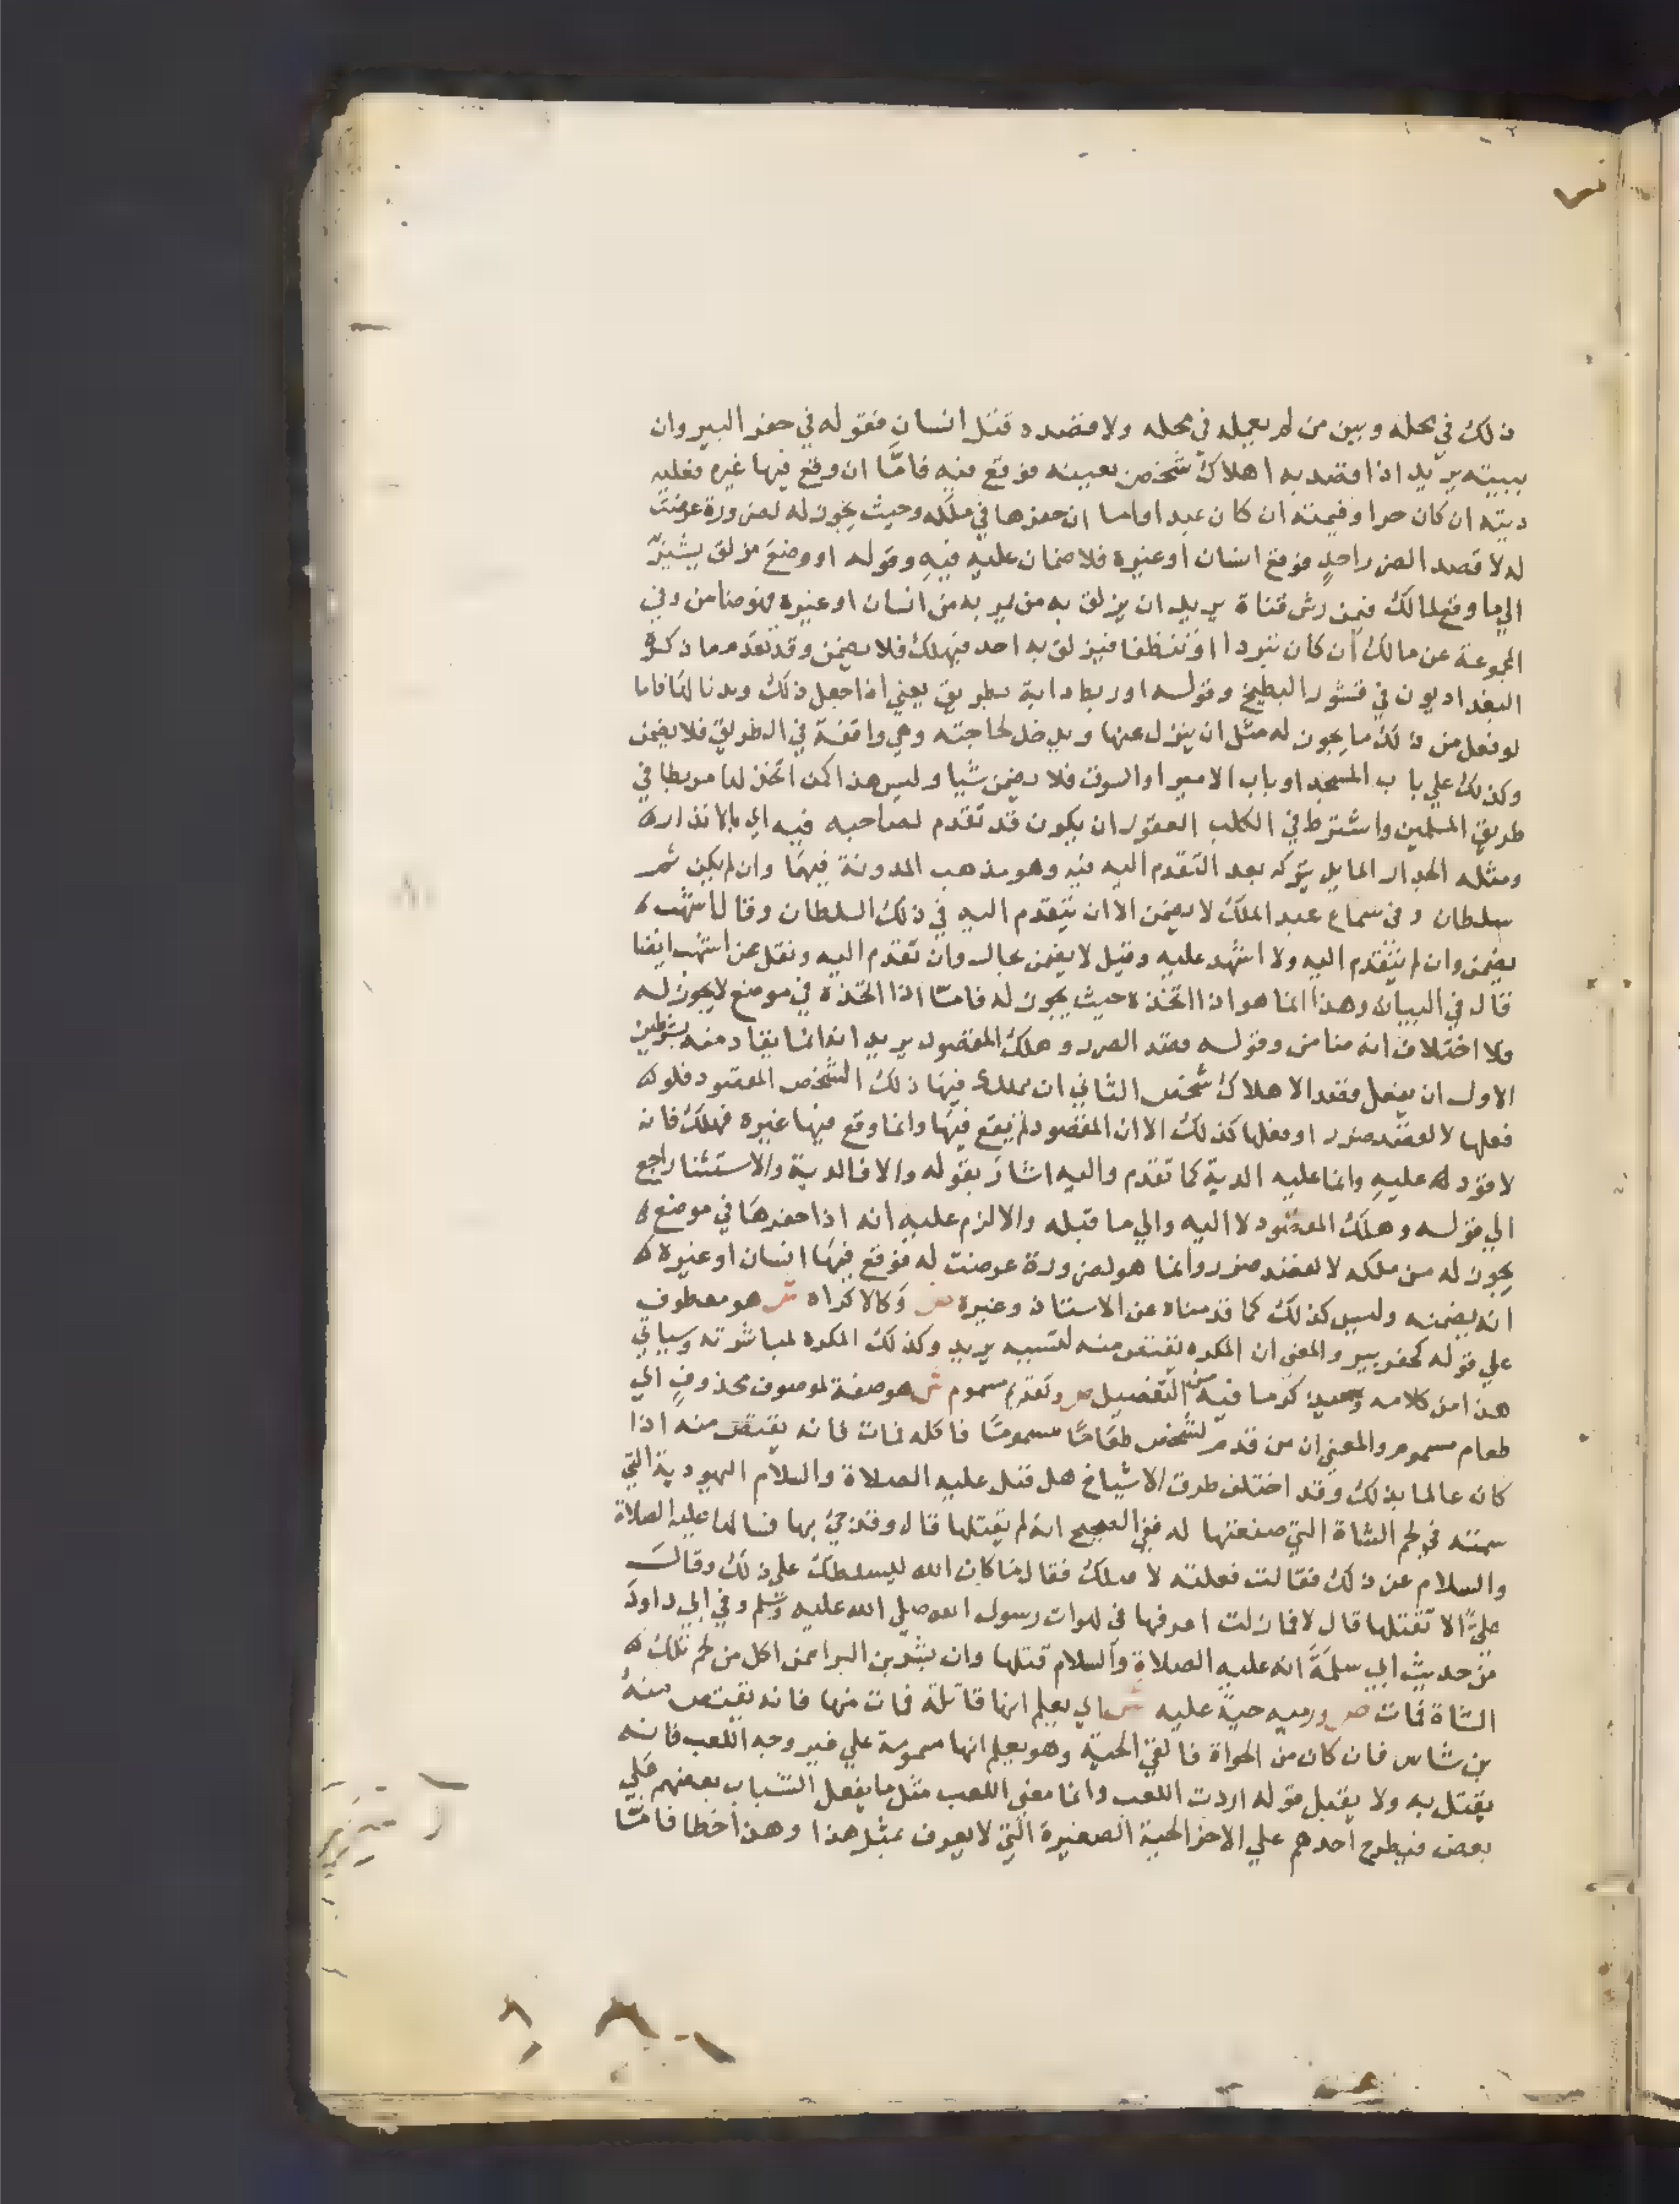 ذلك في محله وبين من لم يعمله في محله ولا قصده قتل انسان فقوله في حفر البير وان
ببيته يريد اذا قصد به اهلاك شخص بعينه فوقع فيه فامّا ان وقع فيها غيره فعليه
ديته ان كان حرا وقيمته ان كان عبدا واما ان حفرها في ملكه وحيث يجوز له لضرورة عرضت
له لا قصد الضرر احدٍ فوقع انسان او غيره فلا ضمان عليه فيهِ وقوله او وضع مزلق يشير
الي ما وقع لمالك فيمن رش قناة يريد ان يزلق به من يمر به من انسان او غيره فهو ضامن وفي
المجموعة عن مالك ان كان تبردا او تنظفا فيزلق به احد فيهلك فلا يضمن وقد تقدم ما ذكره
البغداديون في قشور البطيخ وقوله او ربط دابة بطريق يعني اذا جعل ذلك ديدنا لها فاما
لو فعل من ذلك ما يجوز له مثل ان ينزل عنها ويدخل لحاجته وهي واقفة في الطريق فلا يضمن
وكذلك علي باب المسجد او باب الامير او السوق فلا يضمن شيا وليس هذا كمن اتخذ لها مربطا في
طريق المسلمين واشترط في الكلب العقور ان يكون قد تقدم لصاحبه فيه اي بالانذار
ومثله الجدار المايل يتركه بعد التقدم اليه فيه وهو مذهب المدونة فيهما وان لم يكن ثم
سلطان وفي سماع عبد الملك لا يضمن الا ان يتقدم اليه في ذلك السلطان وقال اشهب
يضمن وان لم يتقدم اليه ولا اشهد عليه وقيل لا يضمن بحال وان تقدم اليه ونقل عن اشهب ايضا
قال في البيان وهذا انما هو اذا اتخذه حيث يجوز له فامّا اذا اتخذه في موضع لا يجوز له
فلا اختلاف انه ضامن وقوله قصد الضرر وهلك المقصود يريد انه انما يقاد منه بشرطين
الاول ان يفعل بقصد الاهلاك شخص الثاني ان يهلك فيها ذلك الشخص المقصود فلو
فعلها لا لقصد ضرر او فعلها كذلك الا ان المقصود لم يقع فيها وانما وقع فيها غيره فهلك فانه
لا قود عليهِ وانما عليه الدية كما تقدم واليه اشار بقوله والا فالدية والاستثنا راجع
الي قوله وهلك المقصود لا اليه والي ما قبله والا لزم عليهِ انه اذا حفرها في موضع
يجوز له من ملكه لا لقصد ضرر وانما هو لضرورة عرضت له فوقع فيها انسان او غيره
انه يضمنه وليس كذلك كما قدمناه عن الاستاذ وغيره ص وكالاكراه ش هو معطوف
علي قوله كحفر بير والمعني ان المكره يقتص منه لتسببه يريد وكذلك المكره لمباشرته وسياتي
هذا من كلامه وسيذكر ما فيه من التفصيل ص وتقديم مسموم ش هو صفة لموصوف محذوفٍ اي
طعام مسموم والمعني ان من قدم لشخص طعامًا مسمومًا فاكله فمات فانه يقتص منه اذا
كان عالما بذلك وقد اختلف طرق الاشياخ هل قتل عليه الصلاة والسلام اليهودية التي
سمته في لحم الشاة التي صنعتها له ففي الصحيح انه لم يقتلها قال وقد جئ بها فسالها عليه الصلاة
والسلام عن ذلك فقالت فعلته لاقتلك فقال ما كان الله ليسلطك علي ذلك وقال
عليّ الا تقتلها قال لا فما زلت اعرفها في لهوات رسول الله صلي الله عليه وسلم وفي ابي داود
من حديث ابي سلمة انه عليه الصلاة والسلام قتلها وان بشر بن البرا ممن اكل من لحم تلك
الشاة فمات ص ورميه حية عليه ش اي يعلم انها قاتلة فمات منها فانه يقتص منه
بن شاس فان كان من الحواة فالقي الحية وهو يعلم انها مسمومة علي غير وجه اللعب فانه
يقتل به ولا يقبل قوله اردت اللعب وانما معني اللعب مثل ما يفعل الشباب بعضهم علي
بعض فيطرح احدهم علي الاخر الحية الصغيرة التي لا يعرف بمثل هذا وهذا خطا فامّا